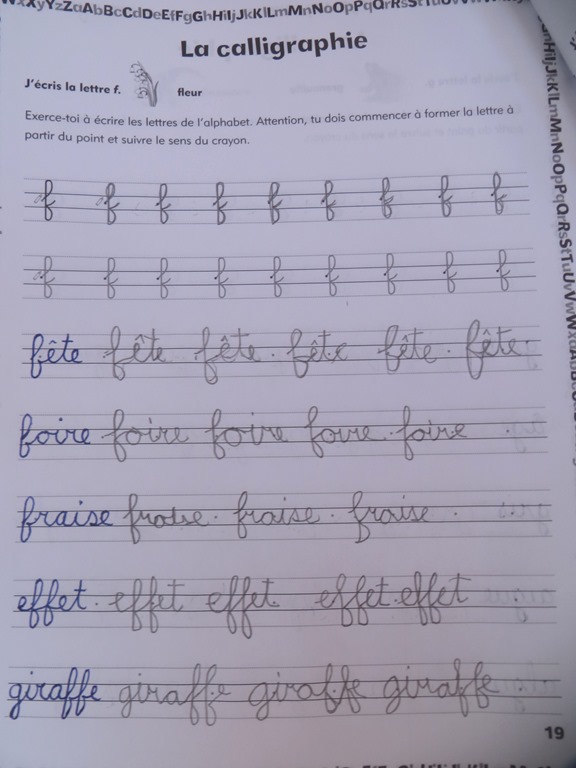 xXyYzZaAbBcCdDeEfFgGhHiIjJkKlLmMnNoOpPqQrRsStTuUvV
La calligraphie
J'écris la lettre f. fleur
Exerce-toi à écrire les lettres de l'alphabet. Attention, tu dois commencer à former la lettre à
partir du point et suivre le sens du crayon.
f f f f f f f f f
f f f f f f f f f
fête fête fête. fête fête. fête.
foire foire foire foire. foire
fraise fraise. fraise. fraise.
effet. effet effet. effet. effet
giraffe giraffe giraffe giraffe.
19
nHiIjJkKlLmMnNoOpPqQrRsStTuUvVwWxX